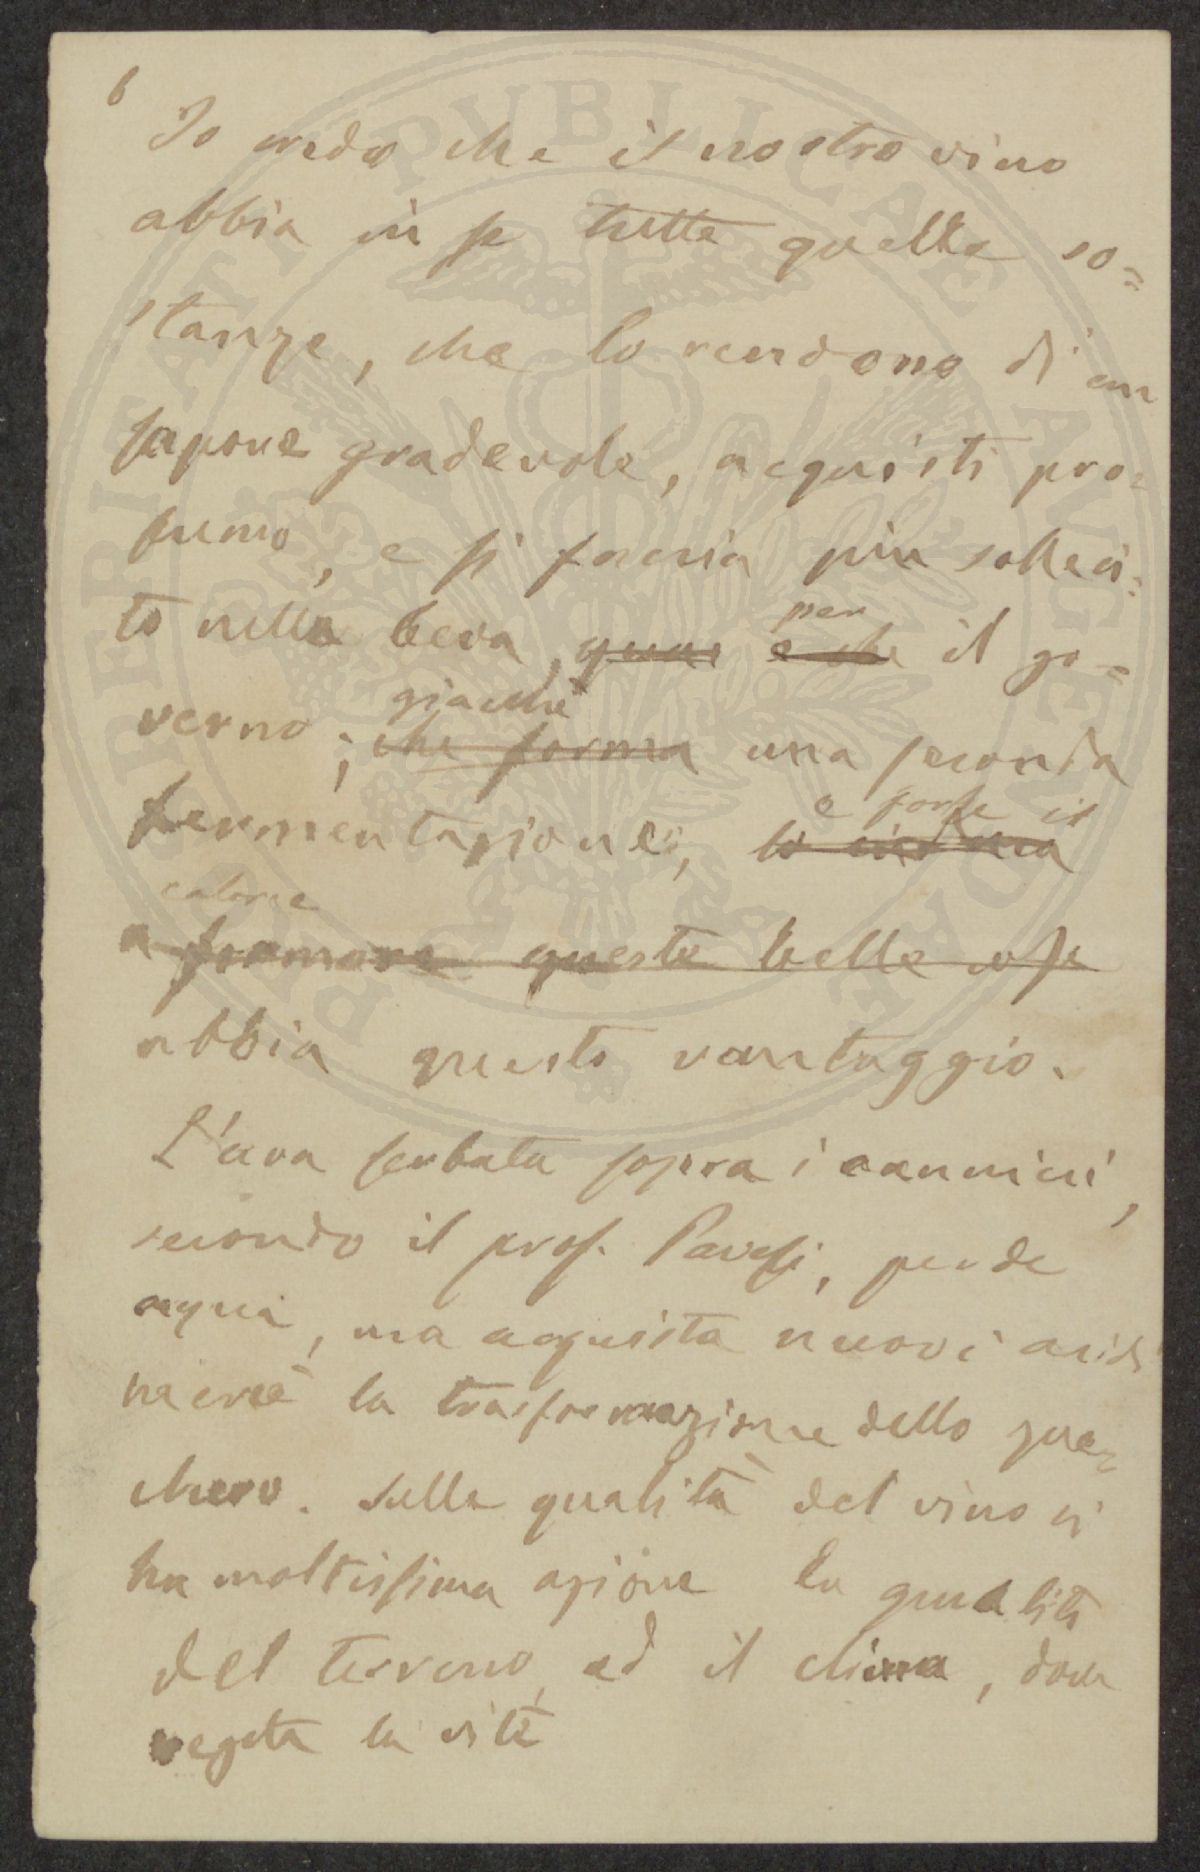 6
Io credo che il nostro vino
abbia in se tutte quelle so=
stanze, che lo rendono di un
sapore gradevole, acquisti pro=
fumo, e si faccia piu solleci=
to nella beva, per il go=
verno; giacchè
che forma una seconda
fermentazione, e forse il
calorie
a formare queste belle cose
abbia questo vantaggio.
L'uva serbata sopra i cannicci,
secondo il prof. Pavesi, perde
acqua, ma acquista nuovi acidi
mercè la trasformazione dello zuc=
chero. Sulla qualità del vino vi
ha moltissima azione la qualità
del terreno, ed il clima, dove
vegeta la vite